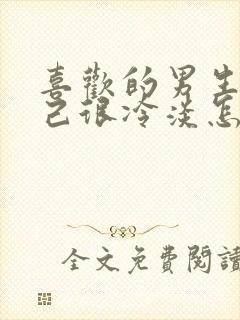 喜歡的男生
己很冷淡怎
全文免費閱讀